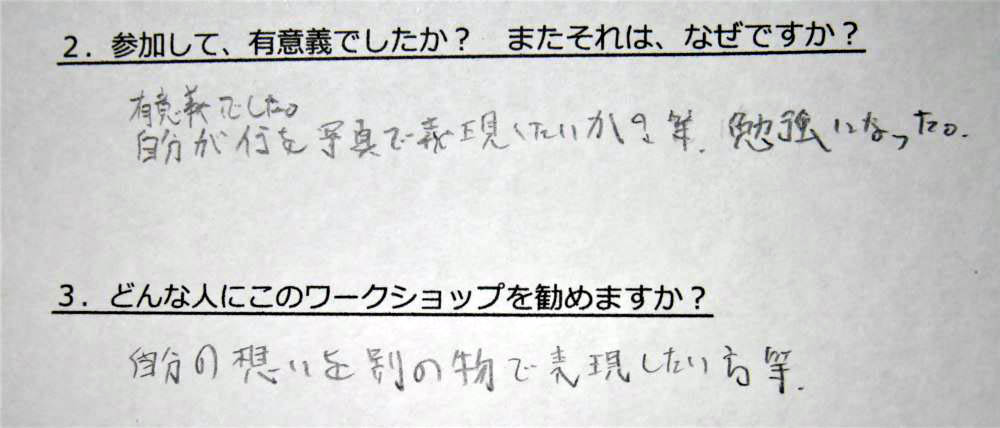 2．参加して、有意義でしたか？　またそれは、なぜですか？
有意義でした。
自分が何を写真で義現したいか？等、勉強になった。
3．どんな人にこのワークショップを勧めますか？
自分の想いを別の物で表現したい方等、